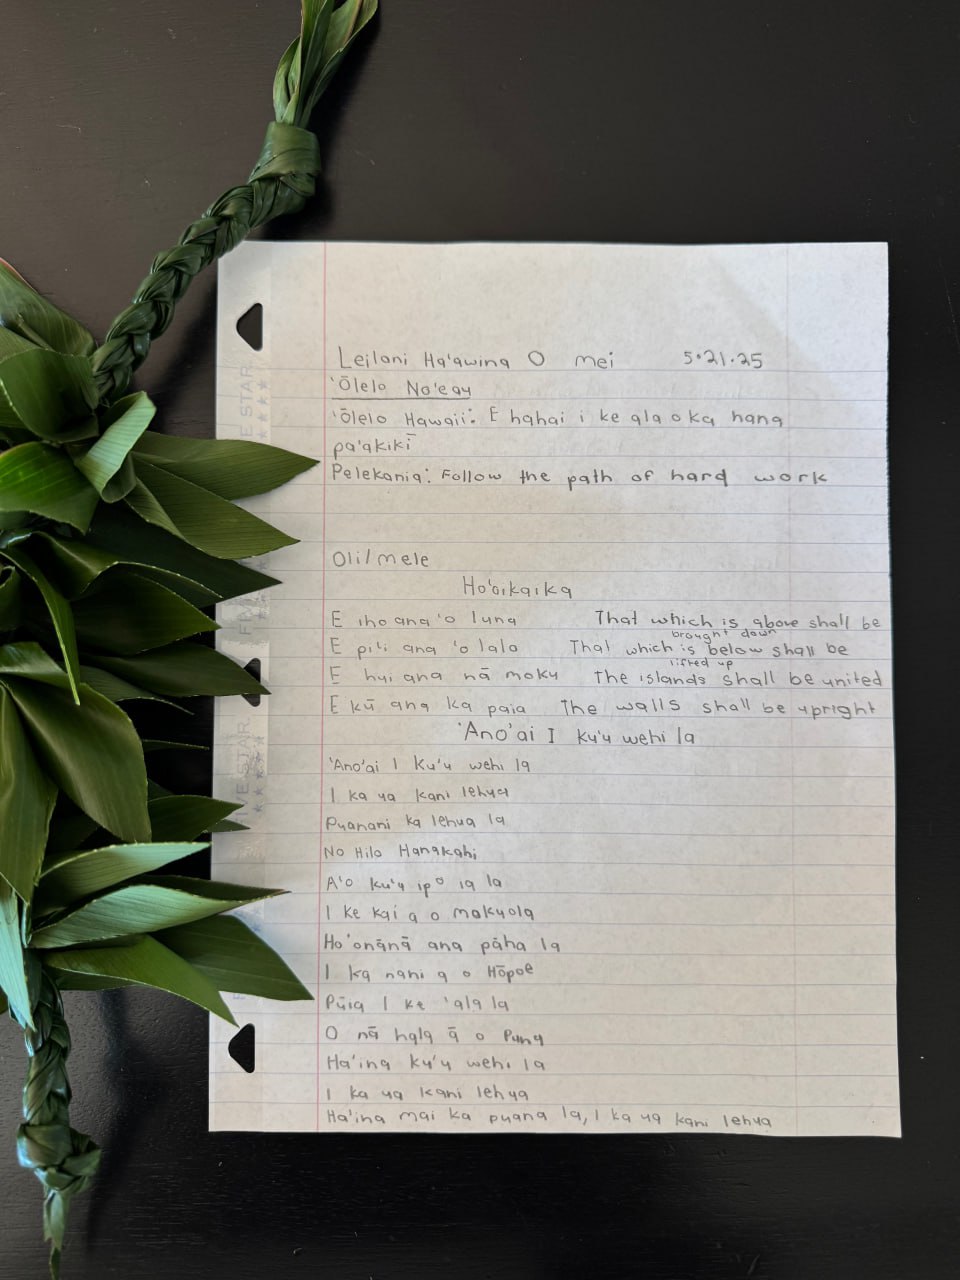 Leilani Ha'awina O mei 5.21.25
'Ōlelo No'eau
'Ōlelo Hawaii: E hahai i ke ala o ka hana
pa'akikī
Pelekania: Follow the path of hard work
Oli/mele
Ho'oikaika
E iho ana 'o luna That which is above shall be
brought down
E pi'i ana 'o lalo That which is below shall be
lifted up
E hui ana nā moku The islands shall be united
E kū ana ka paia The walls shall be upright
'Ano'ai I ku'u wehi la
'Ano'ai I Ku'u wehi la
I ka ua kani lehua
Puanani ka lehua la
No Hilo Hanakahi
A'o ku'u ipo ia la
I ke kai a o makuola
Ho'onānā ana pāha la
I ka nani a o Hōpoe
Pūia I ke 'ala la
O nā hala ā o Puna
Ha'ina ku'u wehi la
I ka ua kani lehua
Ha'ina mai ka puana la, I ka ua kani lehua